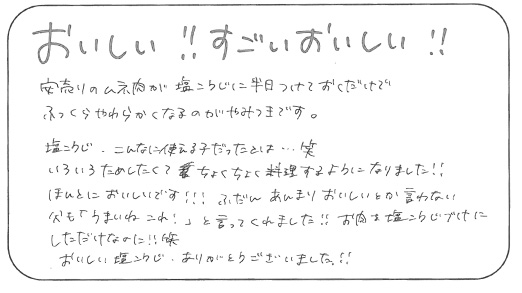 おいしい!! すごいおいしい!!
安売りのムネ肉が塩こうじに半日つけておくだけで
ふっくらやわらかくなるのがやみつきです。
塩こうじ、こんなに使える子だったとは…笑
いろいろためしたくてちょくちょく料理するようになりました!!
ほんとにおいしいです!!! ふだんあんまりおいしいとか言わない
父も「うまいねこれ!」と言ってくれました!! お肉を塩こうじづけに
しただけなのに!!笑
おいしい塩こうじ、ありがとうございました!!